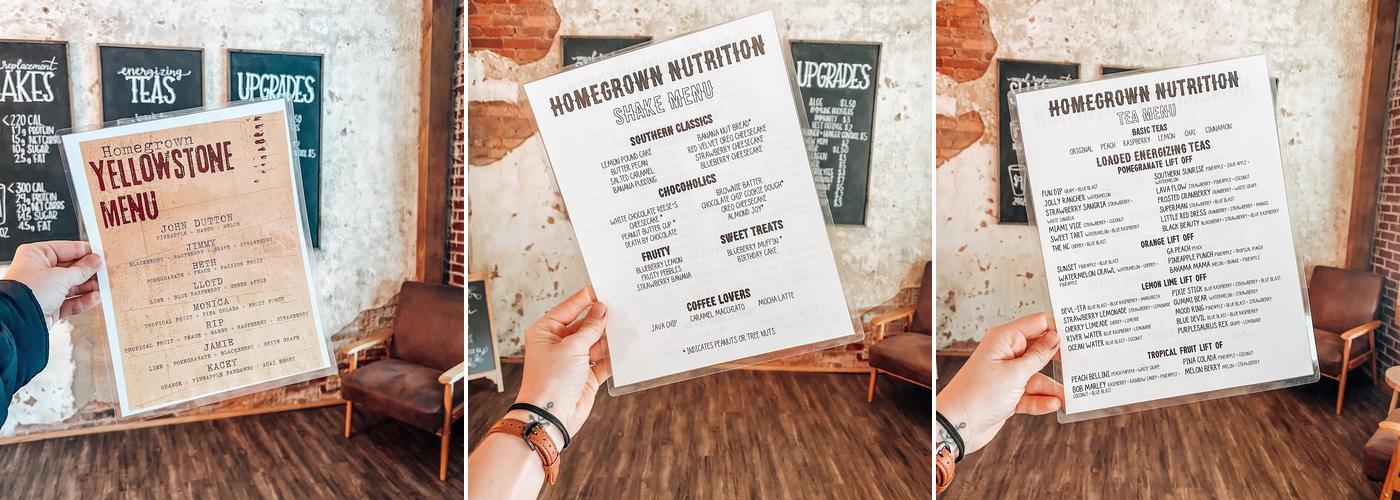 replacement
AKES
<220 CAL
energizing
TEAS
UPGRADES
<300 CAL
Homegrown
YELLOWSTONE
MENU
JOHN DUTTON
PINEAPPLE - MANGO - MELON
JIMMY
BLACKBERRY - RASPBERRY - GRAPE - STRAWBERRY
BETH
POMEGRANATE - PEACH - PASSION FRUIT
LLOYD
LIME - BLUE RASPBERRY - GREEN APPLE
MONICA
TROPICAL FRUIT - PINA COLADA - FRUIT PUNCH
RIP
TROPICAL FRUIT - PEACH - MANGO - RASPBERRY - STRAWBERRY
JAMIE
LIME - POMEGRANATE - BLACKBERRY - WHITE GRAPE
KACEY
ORANGE - PINEAPPLE FANDANGO - ACAI BERRY
HOMEGROWN NUTRITION
SHAKE MENU
SOUTHERN CLASSICS
LEMON POUND CAKE
BUTTER PECAN
SALTED CARAMEL
BANANA PUDDING
BANANA NUT BREAD*
RED VELVET OREO CHEESECAKE
STRAWBERRY CHEESECAKE
BLUEBERRY CHEESECAKE
CHOCOHOLICS
WHITE CHOCOLATE REESE'S
CHEESECAKE *
PEANUT BUTTER CUP *
DEATH BY CHOCOLATE
BROWNIE BATTER
CHOCOLATE CHIP COOKIE DOUGH*
OREO CHEESECAKE
ALMOND JOY*
FRUITY
BLUEBERRY LEMON
FRUITY PEBBLES
STRAWBERRY BANANA
SWEET TREATS
BLUEBERRY MUFFIN *
BIRTHDAY CAKE
COFFEE LOVERS
JAVA CHIP CARAMEL MACCHIATO MOCHA LATTE
* INDICATES PEANUTS OR TREE NUTS
UPGRADES
ALOE $1.50
HOMEGROWN NUTRITION
TEA MENU
BASIC TEAS
ORIGINAL PEACH RASPBERRY LEMON CHAI CINNAMON
LOADED ENERGIZING TEAS
POMEGRANATE LIFT OFF
FUN DIP GRAPE • BLUE BLAST
JOLLY RANCHER WATERMELON
STRAWBERRY SANGRIA STRAWBERRY •
WHITE SANGRIA
MIAMI VICE STRAWBERRY • COCONUT
SWEET TART WATERMELON • BLUE BLAST
THE HC CHERRY • BLUE BLAST
SOUTHERN SUNRISE PINEAPPLE • SOUR APPLE •
WATERMELON
LAVA FLOW STRAWBERRY • PINEAPPLE • COCONUT
FROSTED CRANBERRY CRANBERRY • WHITE GRAPE
SUPERMAN STRAWBERRY • BLUE BLAST
LITTLE RED DRESS CRANBERRY • STRAWBERRY • MANGO
BLACK BEAUTY STRAWBERRY • BLACKBERRY • BLUE RASPBERRY
ORANGE LIFT OFF
SUNSET PINEAPPLE • BLUE BLAST
WATERMELON CRAWL WATERMELON • CHERRY •
PINEAPPLE
GA PEACH PEACH
PINEAPPLE PUNCH PINEAPPLE • TROPICAL PUNCH
BAHAMA MAMA MELON • ORANGE • PINEAPPLE
LEMON LIME LIFT OFF
DEVL-ITA BLUE BLAST • BLUE RASPBERRY • MARGARITA
STRAWBERRY LEMONADE STRAWBERRY • LEMONADE
CHERRY LIMEADE CHERRY • LIMEADE
RIVER WATER BLUE RASPBERRY • LEMONADE
OCEAN WATER BLUE BLAST • COCONUT
PIXIE STICK BLUE RASPBERRY • STRAWBERRY • BLUE BLAST
GUMMI BEAR WATERMELON • STRAWBERRY
MOOD RING PINEAPPLE • BLUE BLAST • STRAWBERRY
BLUE DEVIL BLUE BLAST • BLUE RASPBERRY
PURPLESAURUS REX GRAPE • LEMONADE
TROPICAL FRUIT LIFT OF
PEACH BELLINI PEACH PAPAYA • WHITE GRAPE
BOB MARLEY RASPBERRY • RAINBOW CANDY • PINEAPPLE •
COCONUT • BLUE BLAST
PINA COLADA PINEAPPLE • COCONUT
MELON BERRY MELON • STRAWBERRY